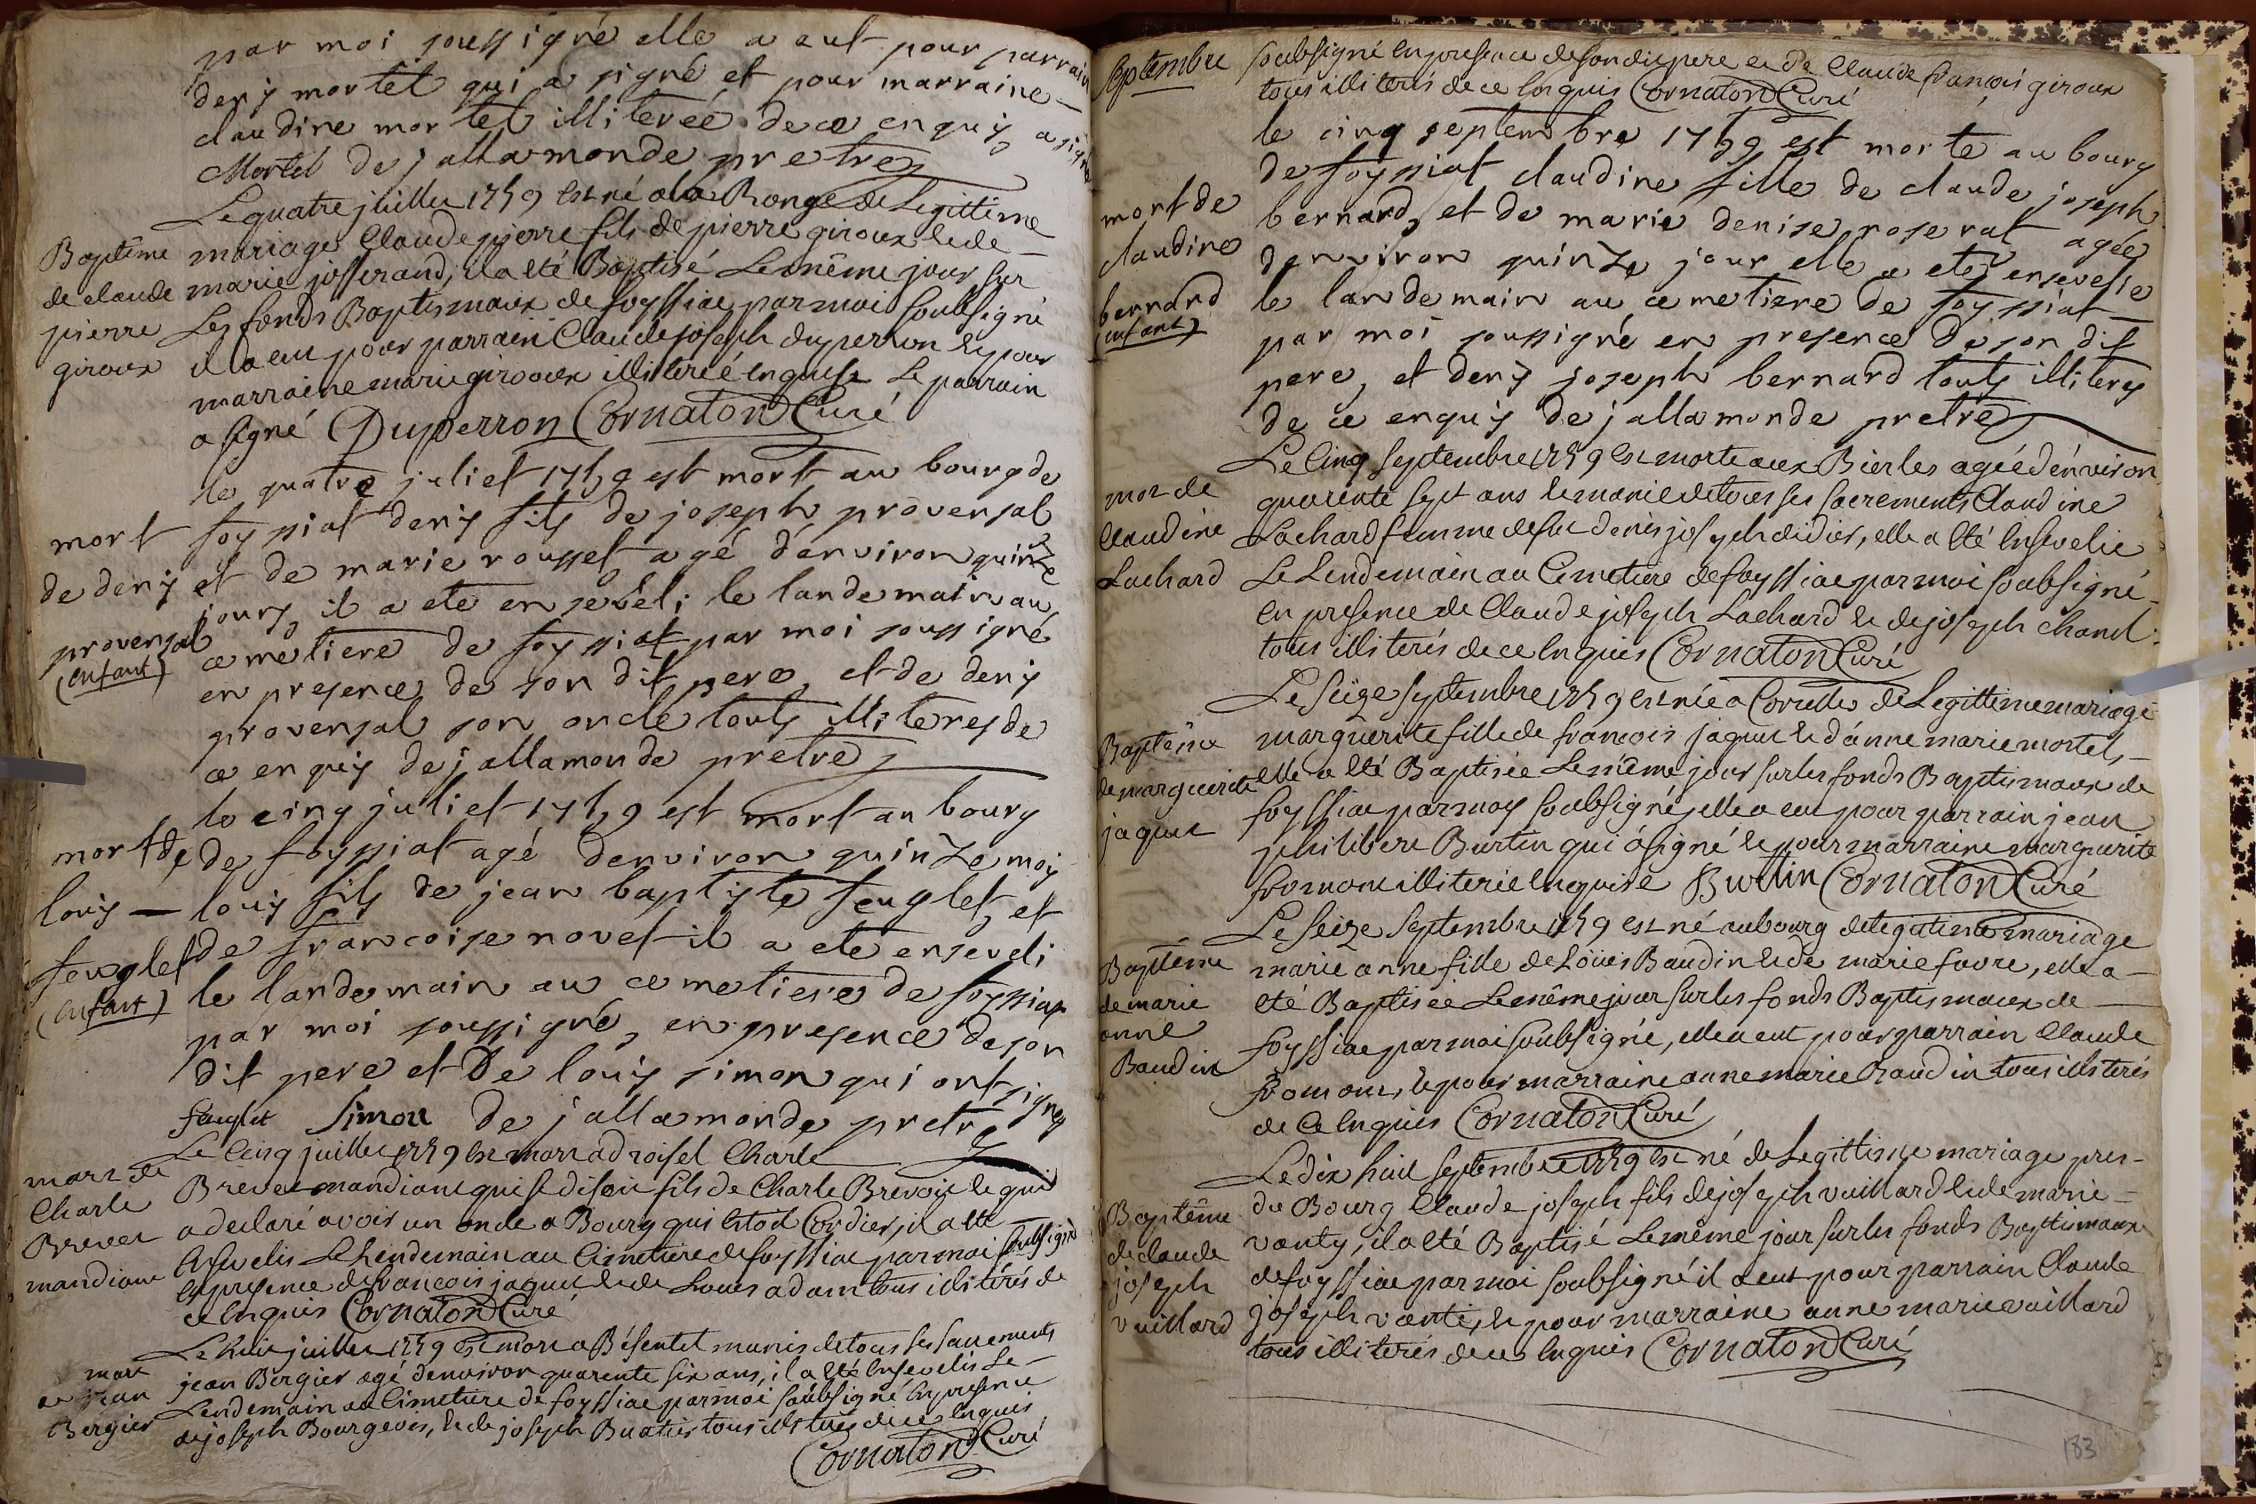 par moi soussigné elle a eut pour parrain
denis mortel qui a signé et pour marraine
claudine mortel illiterée de ce enquis a signé
Mortel de jallamonde pretre
Le quatre juillet 1759 est né a la Ronge de Legittime
Baptême
de claude
pierre
giroux
mariage Claude pierre fils de pierre giroux et de
marie josserand, il a eté Baptisé Le même jour sur
Les fonds Baptismaux de foyssiat par moi soubsigné
il a eu pour parrain Claude joseph duperron et pour
marraine marie giroux illiterée enquise Le parrain
a signé Duperron Cornaton Curé
le quatre juliet 1759 est mort au bourg de
mort
de denis
provensal
(enfant)
foyssiat denis fils de joseph provensal
et de marie rousset agé d'environ quinze
jours, il a ete enseveli le landemain au
cemetiere de foyssiat par moi soussigné
en presence de son dit pere, et de denis
provensal son oncle touts illiteres de
ce enquis de jallamonde pretre
le cinq juliet 1759 est mort au bourg
mort de
louis
feuglet
(enfant)
de foyssiat agé d'environ quinze mois
louis fils de jean baptiste feuglet, et
de francoise novet il a ete enseveli
le landemain au cemetiere de foyssiat
par moi soussigné, en presence de son
dit pere et de louis simon qui ont signés
feuglet Simon de jallamonde pretre
Le Cinq juillet 1759 est mort a Charle
mort de
Charle
Brevet
mandiant
Brevet mandiant qui se disoit fils de Charle Brevoit le quel
a declaré avoir un oncle a Bourg qui etoit Cordier, il a eté
Ensevelis Le Lendemain au Cimetiere de foyssiat par moi soubsigné
En presence de francois jaquet et de Louis adam tous illiterés de
ce Enquis Cornaton Curé
Le huit juillet 1759 est mort a Bésentet munis de tous ses sacrements
mort
de jean
Bergier
jean Bergier agé denviron quarente six ans, il a eté Ensevelis Le
Lendemain au Cimetiere de foyssiat par moi soubsigné En presence
de joseph Bourgeois, et de joseph Buatier tous illiterés de ce Enquis
Cornaton Curé
Septembre
soubsigné En presence de son dit pere et de Claude françois giroux
tous illiterés de ce Enquis Cornaton Curé
le cinq septembre 1759 est morte au bourg
mort de
claudine
bernard
(enfant)
de foyssiat claudine fille de claude joseph
bernard, et de marie denise roserat agée
d'environ quinze jour elle a ete ensevelie
le landemain au cemetiere de foyssiat
par moi soussigné en presence de son dit
pere, et denis joseph bernard touts illiteres
de ce enquis de jallamonde pretre
Le Cinq Septembre 1759 est morte aux Bierles agée d'environ
mor de
Claudine
Lachard
quarente sept ans et munie de tous ses sacrements Claudine
Lachard femme de feu denis joseph didier, elle a eté Ensevelie
Le Lendemain au Cimetiere de foyssiat par moi soubsigné
En presence de Claude joseph Lachard et de joseph chanel
tous illiterés de ce Enquis Cornaton Curé
Le Seize Septembre 1759 est née a Corcelles de Legittime mariage
Baptême
de marguerite
jaquet
marguerite fille de francois jaquet et d'anne marie mortel,
elle a eté Baptisée Le même jour sur les fonds Baptismaux de
foyssiat par moy soubsigné, elle a eu pour parrain jean
philibert Burtin qui a signé et pour marraine marguerite
fromont illiterée Enquise Burtin Cornaton Curé
Le Seize Septembre 1759 est né au bourg de Legitime mariage
Baptême
de marie
anne
Baudin
marie anne fille de Löuis Baudin et de marie favre, elle a
eté Baptisée Le même jour sur les fonds Baptismaux de
foyssiat par moi soubsigné, elle a eut pour parrain Claude
fromont, et pour marraine anne marie Baudin tous illiterés
de ce Enquis Cornaton Curé
Le dix huit Septembre 1759 est né de Legittime mariage pres
Baptême
de claude
joseph
vuillard
du Bourg Claude joseph fils de joseph vuillard et de marie
vanty, il a eté Baptisé Le même jour sur les fonds Baptismaux
de foyssiat par moi soubsigné il a eut pour parrain Claude
joseph vanti, et pour marraine anne marie vuillard
tous illiterés de ce Enquis Cornaton Curé
183